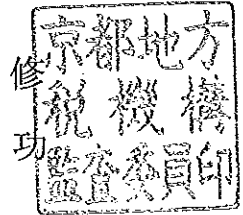 修功
京都地方
税機構
監査委員印